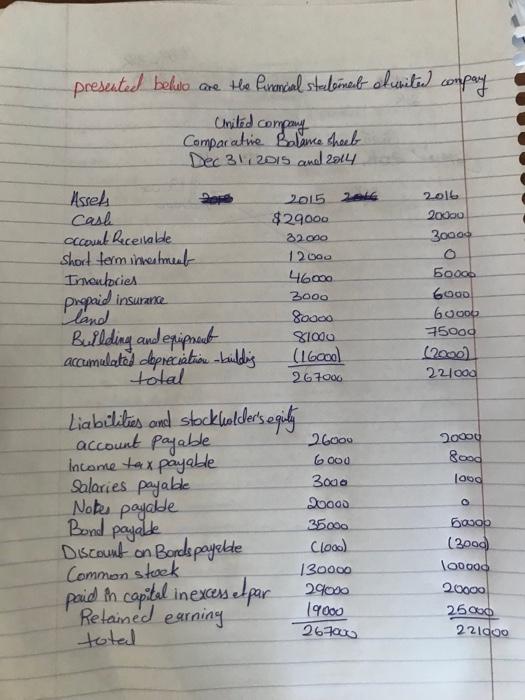 presented below are the financial statement of united company
United company
Comparative Balance sheet
Dec 31, 2015 and 2014
Assets 2015 2016
Cash $29000 20000
account Receivable 32000 30000
Short term investment 12000 0
Inventories 46000 50000
prepaid insurance 3000 6000
land 80000 60000
Building and equipment 81000 75000
accumulated depreciation - building (16000) (2000)
total 267000 221000
Liabilities and stockholder's equity
account payable 26000 20000
Income tax payable 6000 8000
Salaries payable 3000 1000
Notes payable 20000 0
Bond payable 35000 50000
Discount on Bonds payable (1000) (3000)
Common stock 130000 100000
paid in capital in excess of par 29000 20000
Retained earning 19000 25000
total 267000 221000